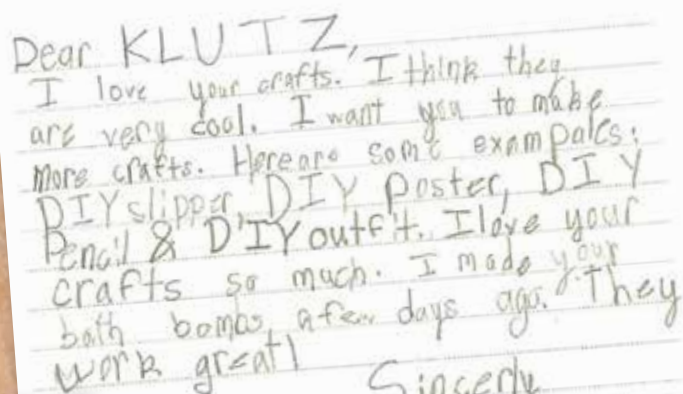 Dear KLUTZ,
I love your crafts. I think they
are very cool. I want you to make
More crafts. Here are some exampales:
DIY slipper, DIY Poster, DIY
Pencil & DIY outfit. I love your
crafts so much. I made your
bath bombs a few days ago. They
work great!
Sincerly